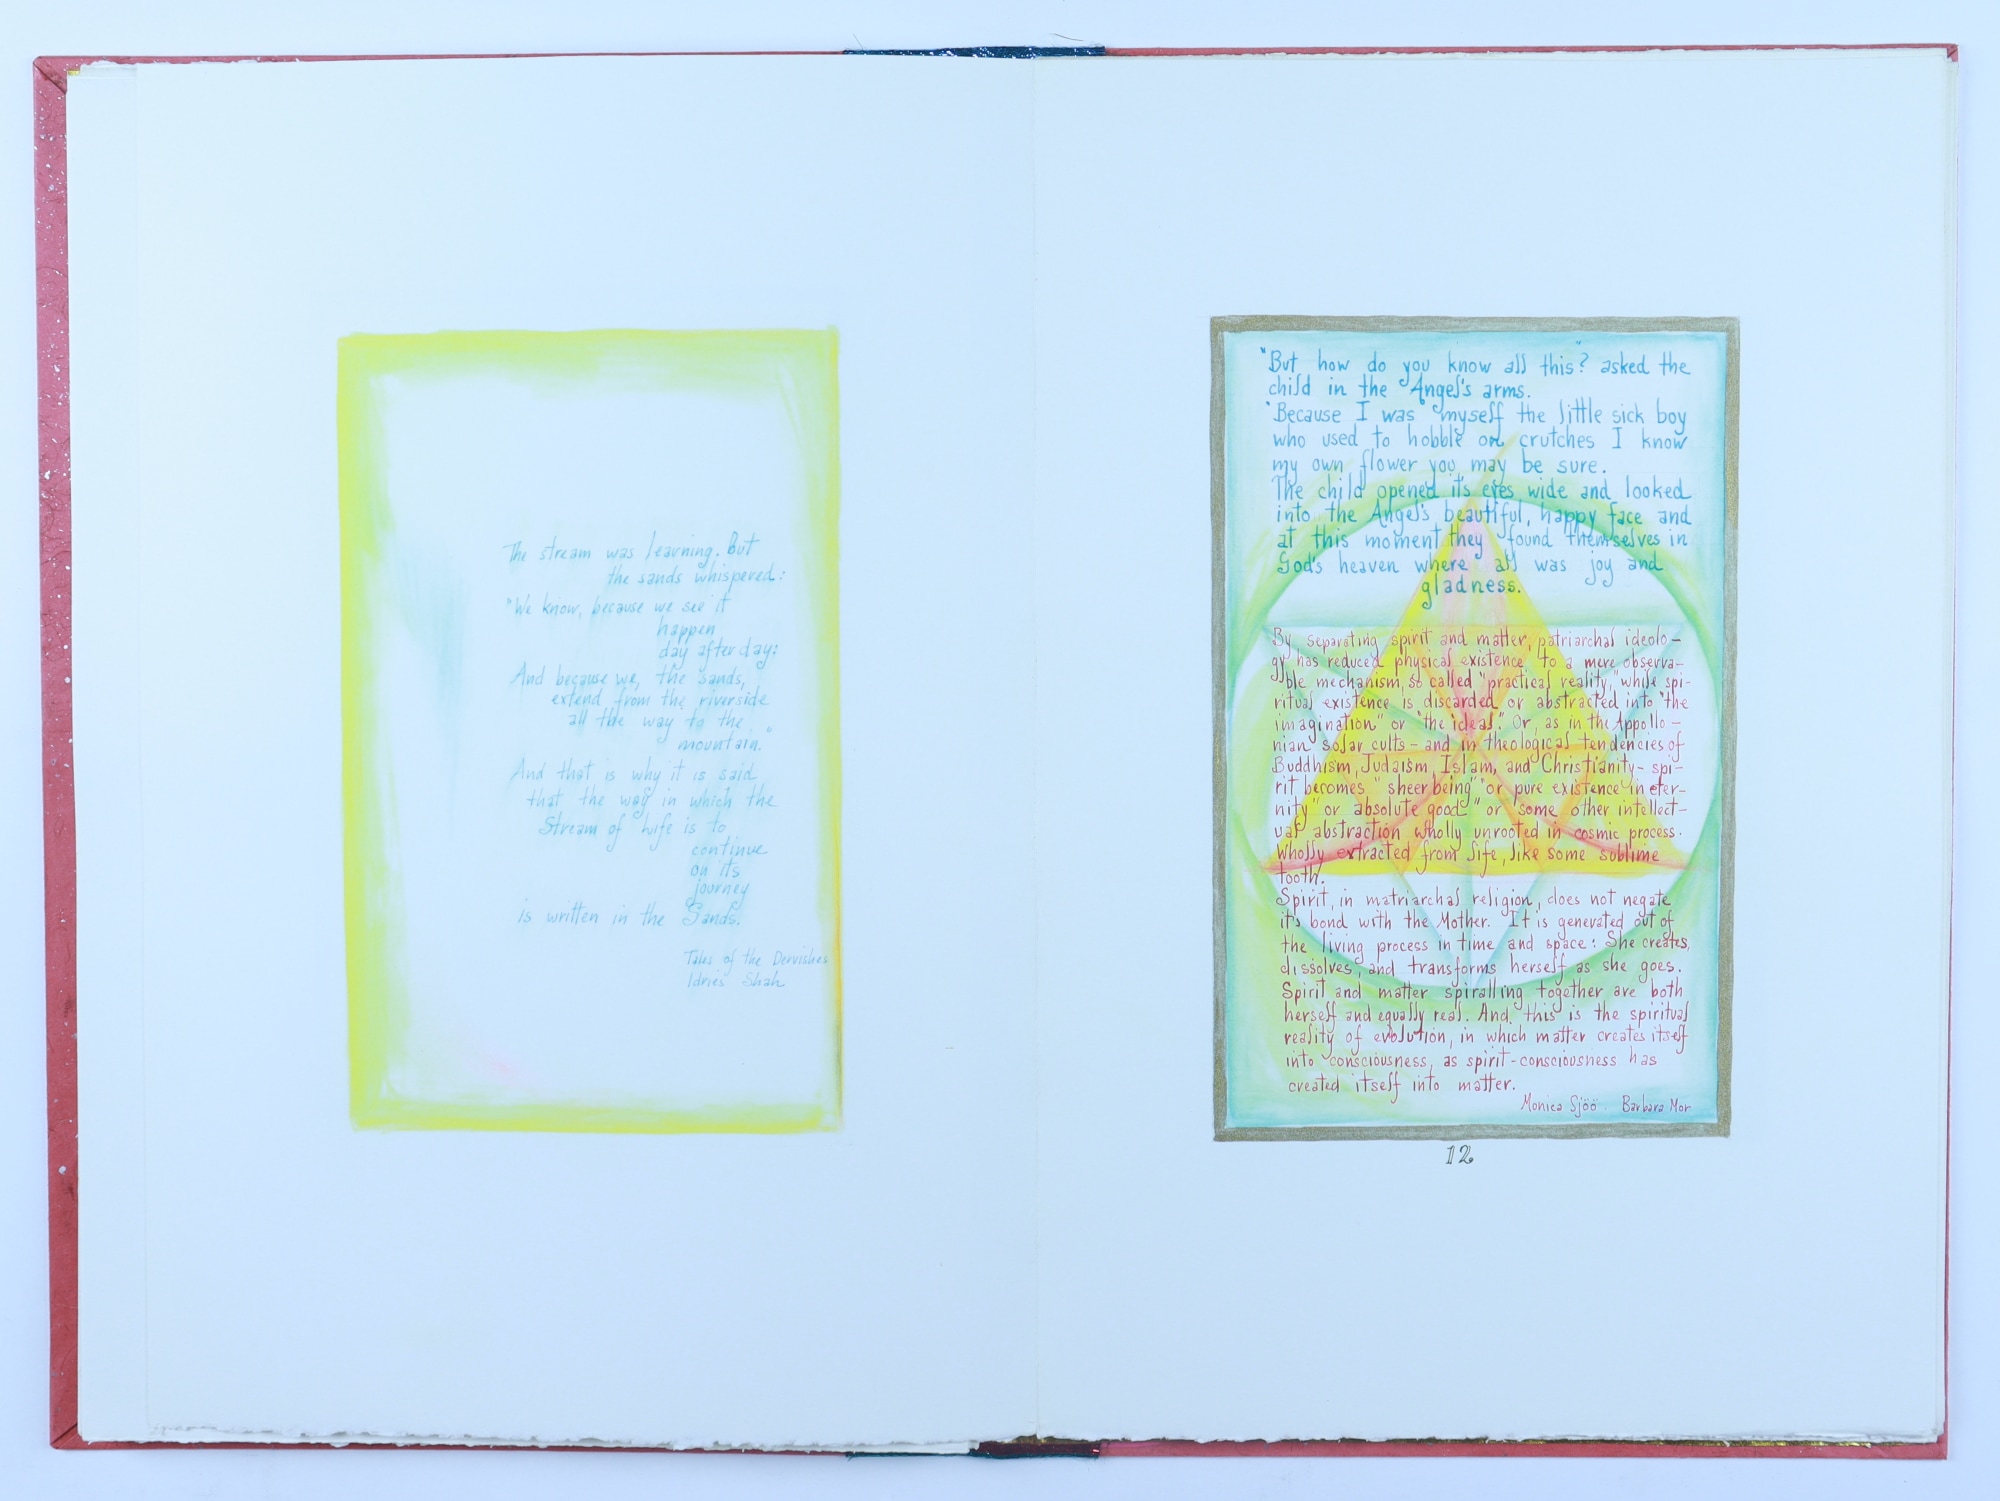 The stream was learning. But
the sands whispered:
"We know, because we see it
happen
day after day:
And because we, the sands,
extend from the riverside
all the way to the
mountain."
And that is why it is said
that the way in which the
Stream of Life is to
continue
on its
journey
is written in the Sands.
Tales of the Dervishes
Idries Shah
"But how do you know all this"? asked the
child in the Angel's arms.
"Because I was myself the little sick boy
who used to hobble on crutches I know
my own flower you may be sure.
The child opened it's eyes wide and looked
into the Angel's beautiful, happy face and
at this moment they found themselves in
God's heaven where all was joy and
gladness.
By separating spirit and matter, patriarchal ideolo-
gy has reduced physical existence to a mere observa-
ble mechanism, so called "practical reality," while spi-
ritual existence is discarded or abstracted into "the
imagination" or "the ideal." Or, as in the Appollo-
nian solar cults - and in theological tendencies of
Buddhism, Judaism, Islam, and Christianity - spi-
rit becomes "sheer being" "or pure existence in eter-
nity" or absolute good" or some other intellect-
ual abstraction wholly unrooted in cosmic process.
Wholly extracted from life, like some sublime
tooth.
Spirit, in matriarchal religion, does not negate
it's bond with the Mother. It is generated out of
the living process in time and space: She creates,
dissolves, and transforms herself as she goes.
Spirit and matter spiralling together are both
herself and equally real. And, this is the spiritual
reality of evolution, in which matter creates itself
into consciousness, as spirit-consciousness has
created itself into matter.
Monica Sjöö. Barbara Mor
12